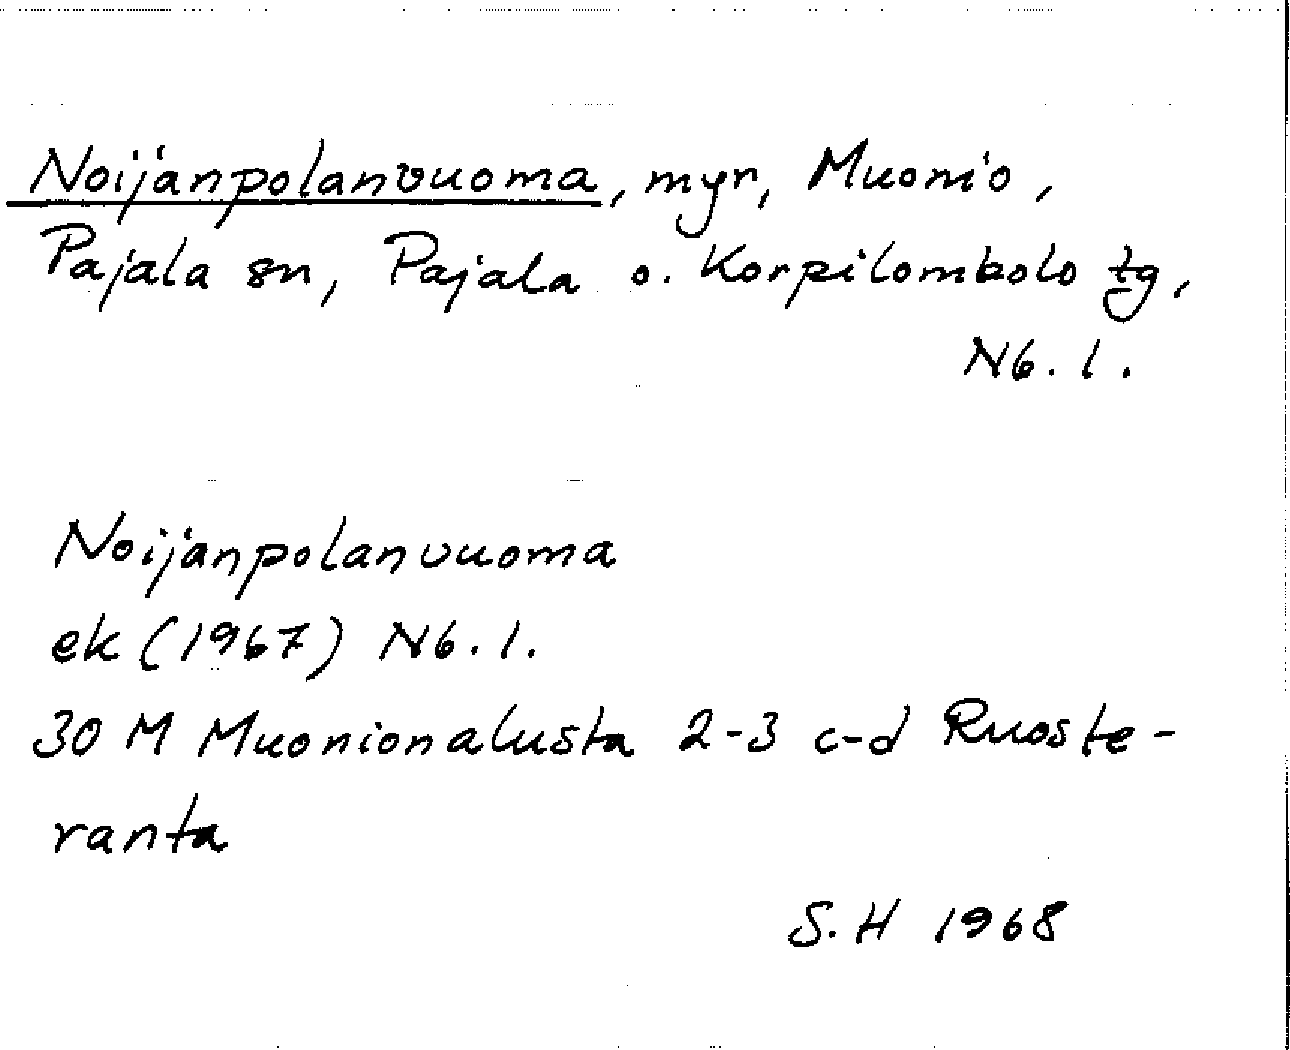 Noijanpolanvuoma, myr, Muonio,
Pajala sn, Pajala o. Korpilombolo tg,
Nb. l.
Noijanpolanvuoma
ek (1967) Nb. l.
30 M Muonionalusta 2-3 c-d Ruoste-
ranta
S.H 1968